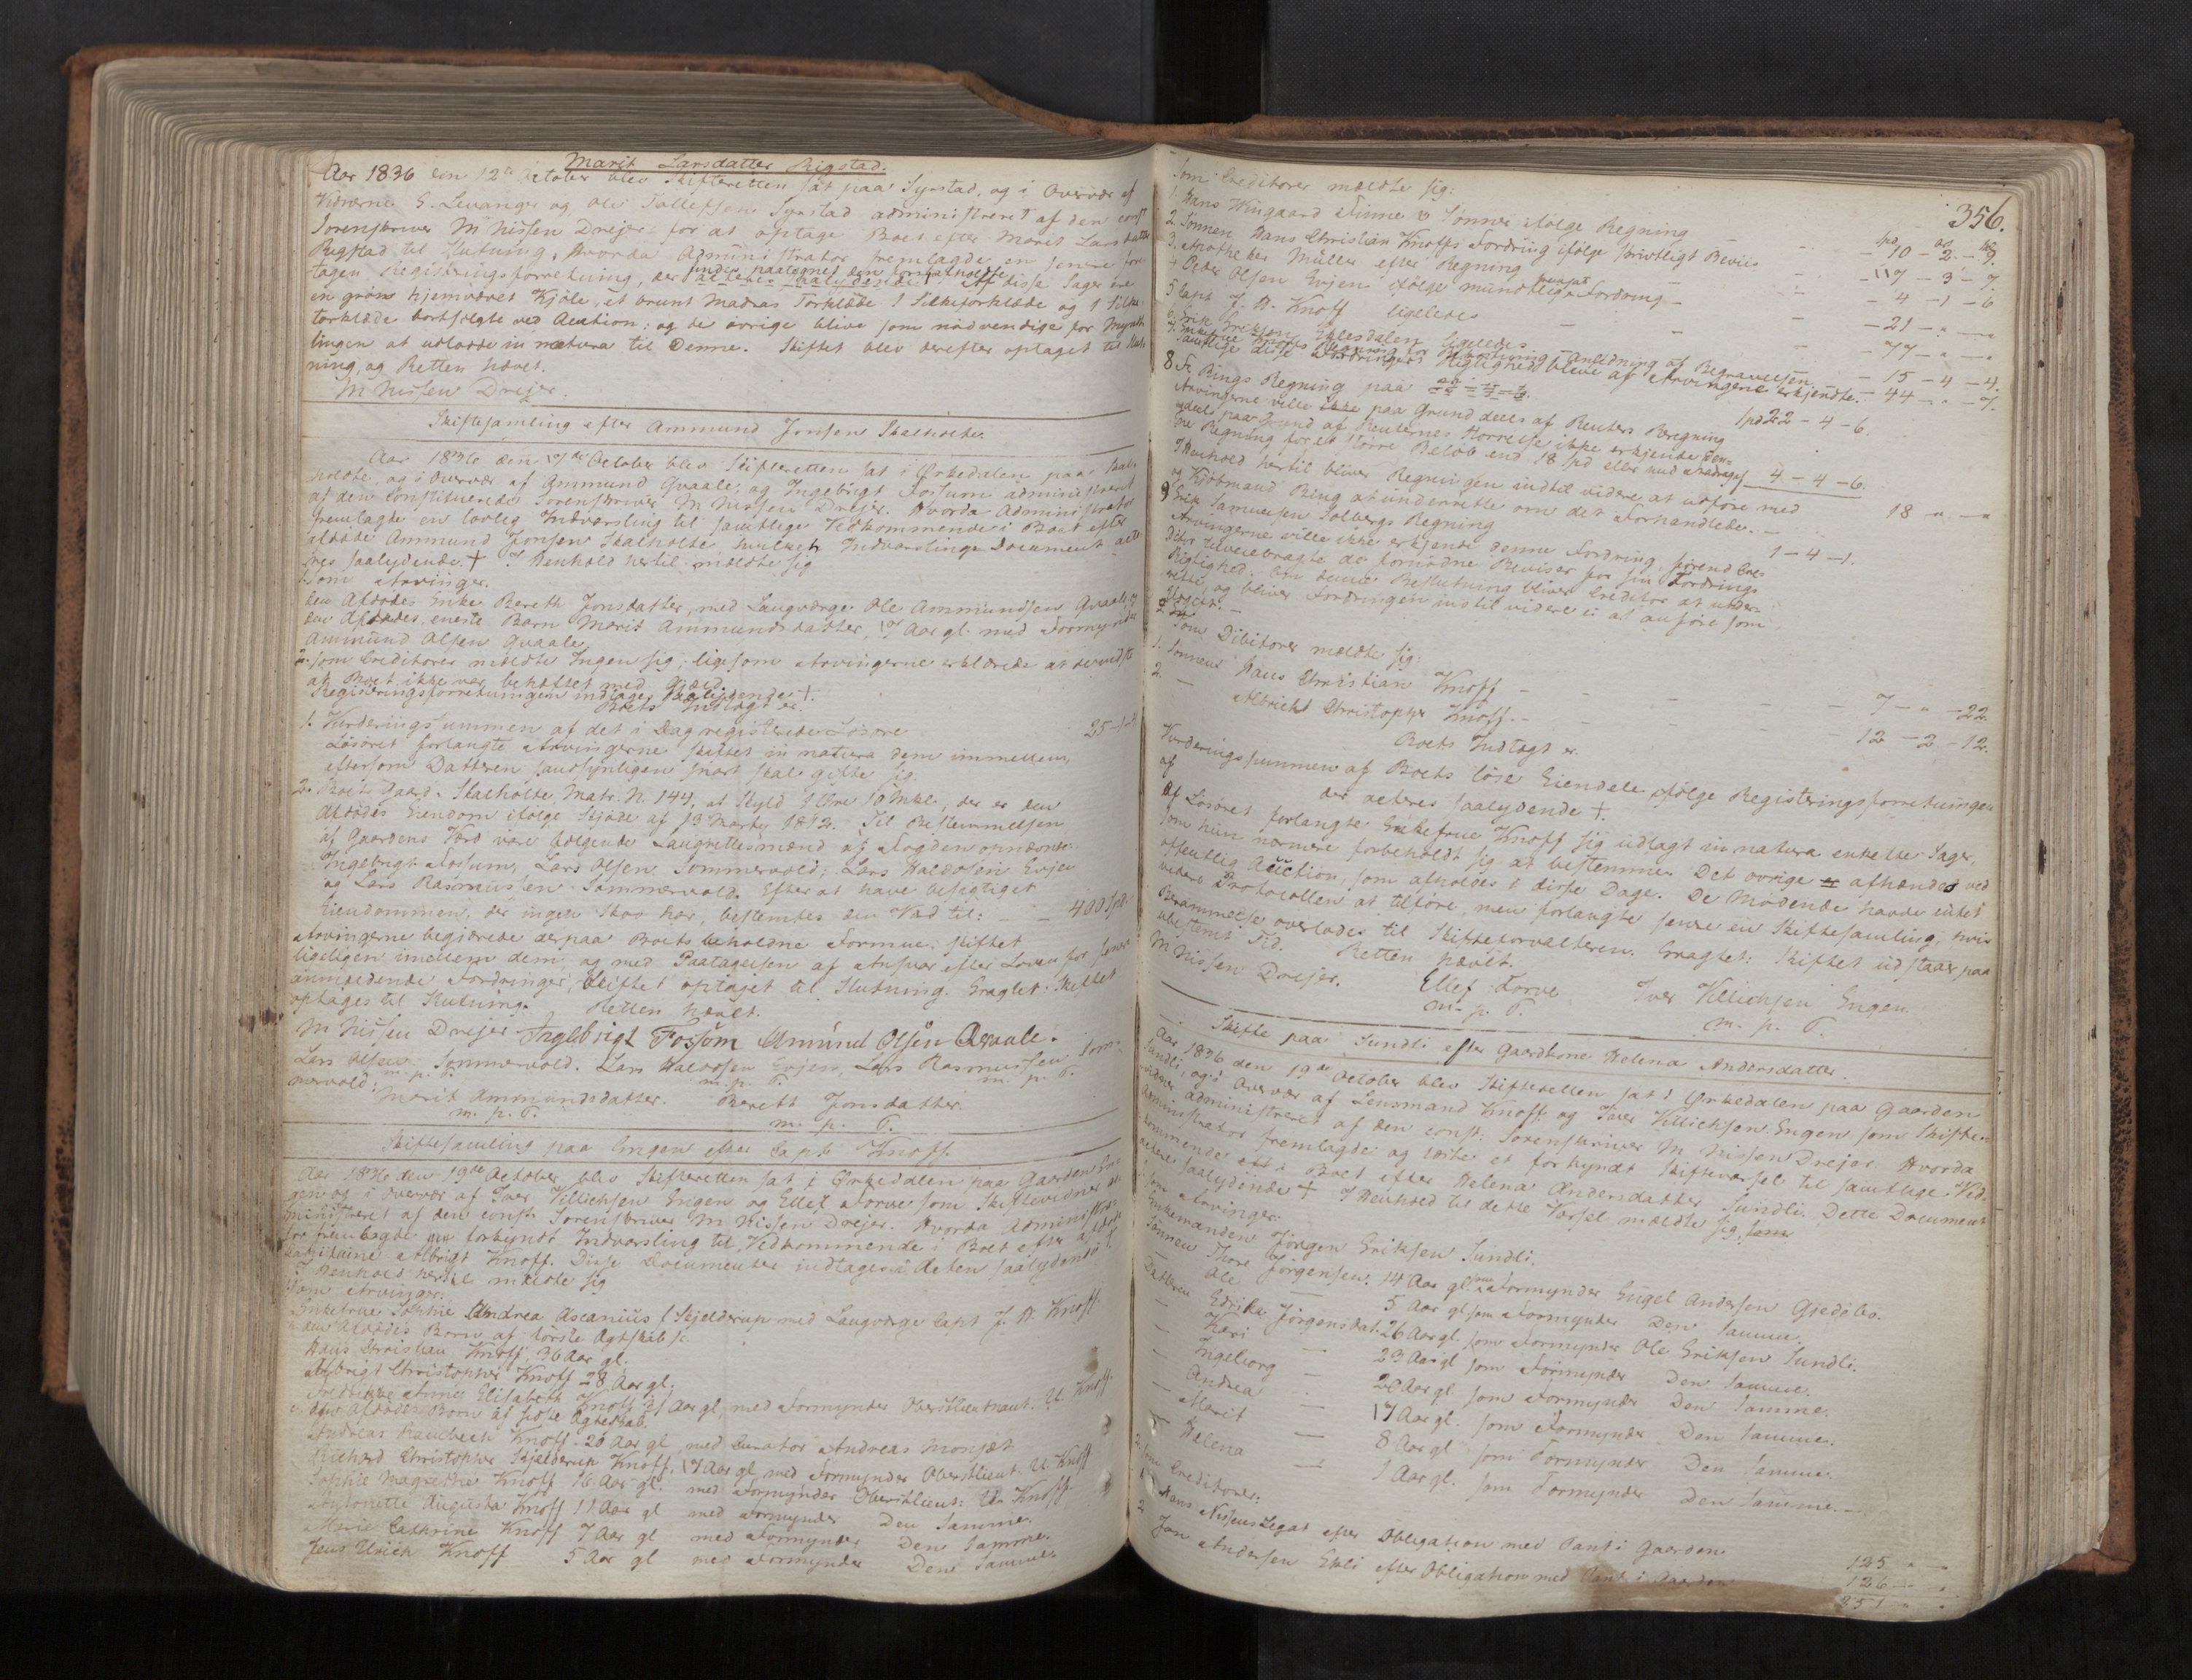 Marit Larsdatter Rigstad.
Aar 1836 den 12te October blev Skifteretten sat paa Syrstad, og i Overvær af
Vidnerne E. Levanger og Ole Tollefsen Syrstad administreret af den const
Sorenskriver M Nissen Drejer for at optage Boet efter Marit Larsdatter
Rigstad til Slutning. Hvorda Administrator fremlagde en forretagen
Registringsforretning, der Af disse Sager ere
en grøn hjemvævet Kjole, et brunt Madras Tørklæde 1 Silkeforklæde og 1 Silke
tørklæde bortsolgte ved Auction; og de øvrige blive som nødvendige for Mynd
lingen at udlodde in natura til Denne. Skiftet blev derefter optaget til Slut
ning, og Retten hævet.
M Nissen Drejer.
Skiftesamling efter Ammund Jonsen Skalholte.
Aar 1836 den 17de October blev Skifteretten sat i Ørkedalen paa Skal
holdte, og i Overvær af Ammund Qvaale, og Ingebrigt Fossum administreret
af den Constituerede Sorenskriver M Nissen Drejer. Hvorda Administrator
fremlagde en lovlig Indvarsling til samtlige Vedkommende i Boet efter
afdøde Ammund Jonsen Skalholte, hvilket Indvarslings Document acte
res saalydende + I Henhold hertil meldte sig
1. Som Arvinger.
den Afdødes Enke Bereth Jonsdatter, med Laugværge Ole Ammundsen Qvaale, og
den Afdødes eneste Barn Marit Ammundsdatter, 17 Aar gl. med Formynder
Ammund Olsen Qvaale
2. Som Creditorer meldte Ingen sig, ligesom Arvingerne erklærede at
at Boet ikke var behæftet med Gjæld.
Registeringsforretningen indtages saalydende +.
Boets Indtægt er.
1. Vurderingssummen af det i Dag registerede Løsøre 25-1-
Løsøret forlangte Arvingerne skiftet in natura dem immellem,
eftersom Datteren sandsynligen snart skal gifte sig.
2. Boets Gaard Skalholte, Matr. N. 144, at Skyld 1 Øre 10 Mkl., der er den
Afdødes Eiendom ifølge Skjøde af 13 Marts 1812. Til Bestemmelsen
af Gaardens Værd vare følgende Laugrettesmænd af Fogden opnævnte:
Ingebrigt Fossum, Lars Olsen Sommervold, Lars Haldosen Evjen
og Lars Rasmussen Sommervold. Efter at have besigtiget
Eiendommen, der ingen Skov har, bestemtes den Værd til: — — 400 Spd.
Arvingerne begjærede derpaa Boets beholdne Formue skiftet
ligeligen imellem dem, og med Paatagelsen af Ansvar efter Loven for senere
anmeldende Fordringer, Skiftet optaget til Slutning. Eragtet: Skiftet
optages til Slutning. Retten hævet.
M Nissen Drejer Ingebrigt Fossum Amund Olsen Qvaale.
Lars Olsen Sommervold. Lars Haldosen Evjen, Lars Rasmussen Som-
m. p. P. m. p. P. m. p. P.
mervold.
Merit Ammundsdatter. Berett Jonsdatter.
m. p. P. m. p. P.
Skiftesamling paa Engen efter Capt Knoff.
Aar 1836 den 19de October blev Skifteretten sat i Ørkedalen paa Gaarden En
gen og i Overvær af Iver Villichsen Engen og Ellef Torve som Skiftevidner ad
ministreret af den const. Sorenskriver M Nissen Drejer. Hvorda Administra
tor fremlagde forkyndt Indvarsling til Vedkommende i Boet efter afdøde
Capitaine Albrigt Knoff. Disse Documenter indtages i Acten saalydende +.
I Henhold hertil meldte sig
1. Som Arvinger.
Enkefrue Sophie Andrea Ascanius f. Skjelderup med Laugværge Capt J. A. Knoff.
den Afdødes Børn af første Ægteskab
Hans Christian Knoff 36 Aar gl.
Albrigt Christopher Knoff 28 Aar gl.
Fredrikke Anne Elisabeth Knoff 21 Aar gl, med Formynder Oberstlieutnant U. Knoff.
den Afdødes Børn af sidste Ægteskab.
Andreas Knoff 20 Aar gl med Curator Andreas
Richard Christopher Skjelderup Knoff 17 Aar gl med Formynder Oberstlieut. U. Knoff
Sophie Magrethe Knoff 16 Aar gl. med Formynder Oberstlieut: U. Knoff.
Antonette Augusta Knoff 11 Aar gl med Formynder Den Samme.
Marie Cathrine Knoff 7 Aar gl med Formynder Den Samme.
Jens Ulrich Knoff 5 Aar gl med Formynder Den Samme.
356.
Som Creditorer meldte sig:
1. Hans Wingaard Finne & Sønner ifølge Regning — 10 - 2 - 9.
2. Sønnen Hans Christian Knoffs Fordring ifølge skriftligt Beviis — 117 - 3 - 7.
3. Apotheker Müller efter Regning — 4 - 1 - 6
4 Peder Olsen Evjen ifølge mundtlig Fordring — 21 - " - "
5 Capt J. A. Knoff ligeledes — 77 - " - "
6. Erik Eriksen Eklesdalen ligeledes — 15 - 4 - 4.
7. Enkefrue Knoffs Regning for Bekostning i Anledning af Begravelsen — 44 - " - 7.
Samtlige disse Fordringers Rigtighed bleve af Arvingerne erkjendte.
8 Fr. Rings Regning paa Spd 22 - 4 - 6.
Arvingerne ville ikke paa Grund deels af Renters Beregning
deels paa Grund af Renternes Størrelse ikke erkjende den-
ne Regning for et større Beløb end 18 Spd eller med Afdrag af 4 - 4 - 6.
I Henhold hertil bliver Regningen indtil videre at udføre med 18 " - "
og Kjøbmand Ring at underrette om det Forhandlede. —
9 Erik Samuelsen Solbergs Regning 1 - 4 - 1.
Arvingerne ville ikke erkjende denne Fordring, førend Cre-
ditor tilveiebragte de fornødne Beviser for sin Fordrings
Rigtighed. Om denne Beslutning bliver Creditor at under-
rette og bliver Fordringen indtil videre ei at anføre som
2. Som Debitorer meldte sig:
1. Sønnen Hans Christian Knoff — 7 - " - 22.
2. — Albricht Christopher Knoff. — 12 - 2 - 12.
Boets Indtægt er.
Vurderingssummen af Boets løse Eiendele ifølge Registeringsforretningen
der acteres saalydende +.
Af Løsøret forlangte Enkefrue Knoff sig udlagt in natura enkelte Sager,
som hun nærmere forbeholdt sig at bestemme. Det øvrige afhændes ved
offentlig Auction, som afholdes i disse Dage. De Mødende havde intet
videre Protocollen at tilføre, men forlangte senere en Skiftesamling, hvis
Berammelse overlodes til Skifteforvalteren. Eragtet: Skiftet udstaar paa
ubestemt Tid. Retten hævet.
M Nissen Drejer. Ellef Torve Iver Villichsen Engen
m. p. P. m. p. P.
Skifte paa Sundli efter Gaardkone Helena Andersdatter.
Aar 1836 den 19de October blev Skifteretten sat i Ørkedalen paa Gaarden
Sundli, og i Overvær af Lensmand Knoff og Iver Villichsen Engen som Skifte-
vidner administreret af den const: Sorenskriver M Nissen Drejer. Hvorda
Administrator fremlagde og læste et forkyndt Skiftevarsel til samtlige Ved-
kommende i Boet efter Helena Andersdatter Sundli. Dette Document
acteres saalydende + I Henhold til dette Varsel meldte sig
1. Som Arvinger.
Enkemanden Jørgen Eriksen Sundli.
Sønnen Thore Jørgensen. 14 Aar gl. som Formynder Engel Andersen Gjedølos.
— Ole — 5 Aar gl som Formynder Den Samme.
Datteren Edrika Jørgensdat. 26 Aar gl. som Formynder Ole Eriksen Sundli.
— Kari — 23 Aar gl som Formynder Den Samme.
— Ingeborg — 20 Aar gl. som Formynder Den Samme.
— Andrea — 17 Aar gl. som Formynder Den Samme.
— Marit — 8 Aar gl som Formynder Den Samme.
— Helena — 1 Aar gl. som Formynder Den Samme. —
2. Som Creditorer:
1 Hans Nissens Legat efter Obligation med Pant i Gaarden 125 " —
2 Jon Andersen Ekli efter Obligation med Pant i Gaarden 126 — "
251 " "